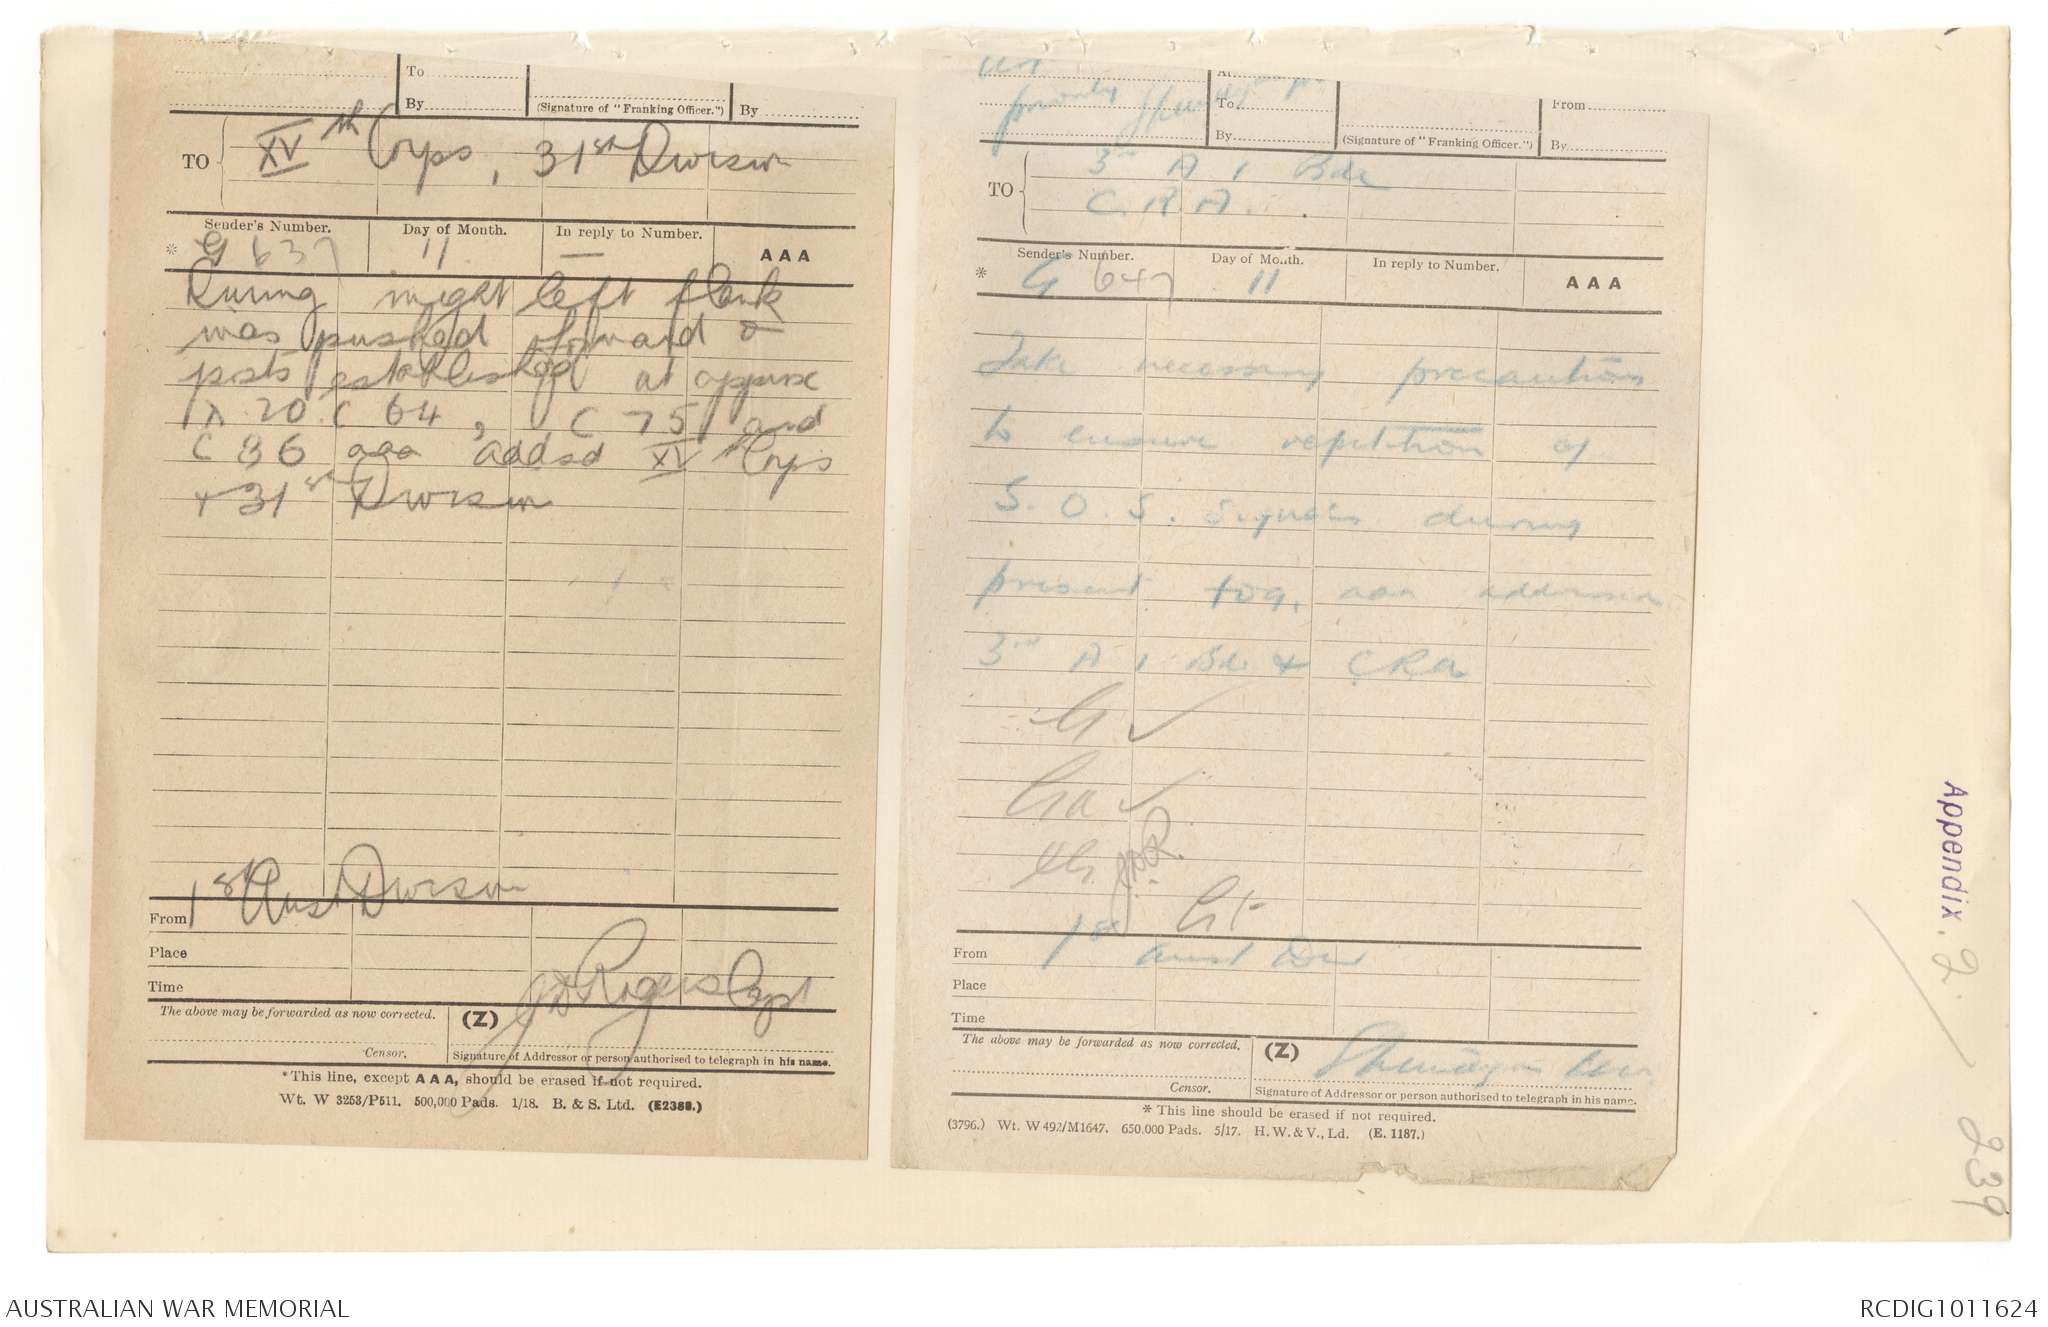 To
By
(Signature of "Franking Officer.") By
TO XVth Corps, 31st Division
Sender's Number. Day of Month. In reply to Number. AAA
* G 637 11 —
During night left flank
was pushed forward &
posts established at approx
X 20 C 64, C 75 and
C 86 aaa added XVth Corps
+ 31st Division
From 1st Aust Division
Place
Time
JD Rogers Capt
The above may be forwarded as now corrected. (Z)
Censor. Signature of Addressor or person authorised to telegraph in his name.
*This line, except AAA, should be erased if not required.
Wt. W 3253/P511. 500,000 Pads. 1/18. B. & S. Ltd. (E2388.)
priority
At
To
By
(Signature of "Franking Officer.")
From
By
TO 3rd A I Bde
C.R.A.
Sender's Number. Day of Month. In reply to Number. AAA
* G 647 11
Take necessary precautions
to ensure repetition of
S.O.S. Signals during
present fog. aaa addressed
3rd A I Bde + CRA
G ✓
Ga ✓
JDR.
From 1st Aust Div
Place
Time
The above may be forwarded as now corrected. (Z)
Censor. Signature of Addressor or person authorised to telegraph in his name.
* This line should be erased if not required.
(3796.) Wt. W492/M1647. 650,000 Pads. 5/17. H. W. & V., Ld. (E. 1187.)
Appendix. 2.
239
AUSTRALIAN WAR MEMORIAL
RCDIG1011624